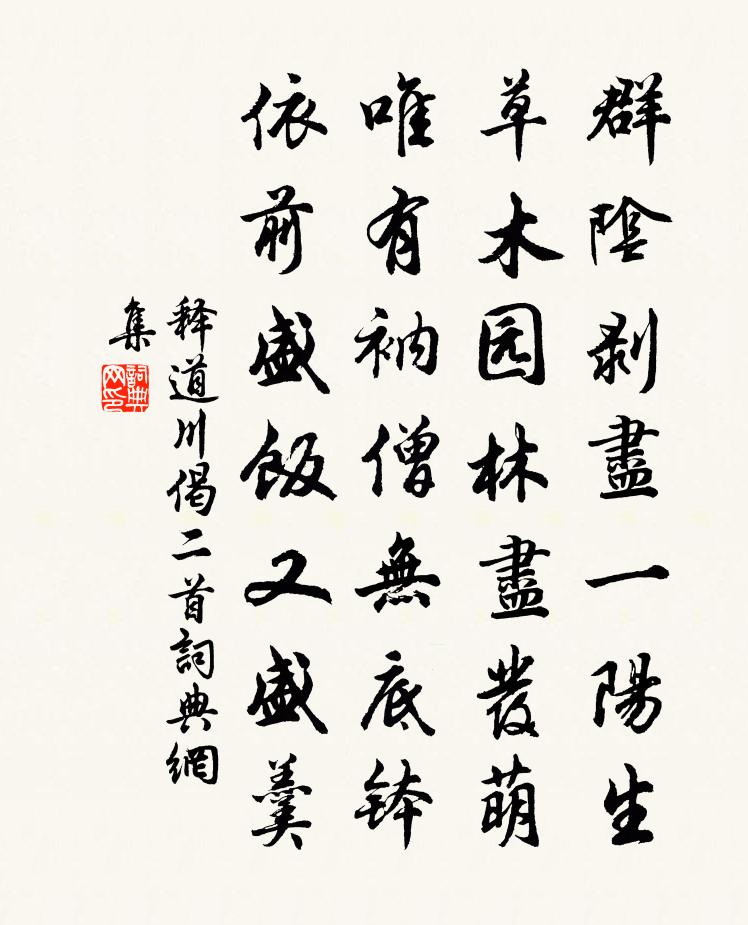 群陰剥盡一陽生
草木园林盡發萌
唯有衲僧無底鉢
依前盛飯又盛羹
释道川偈二首詞典網
集
詞典
网印